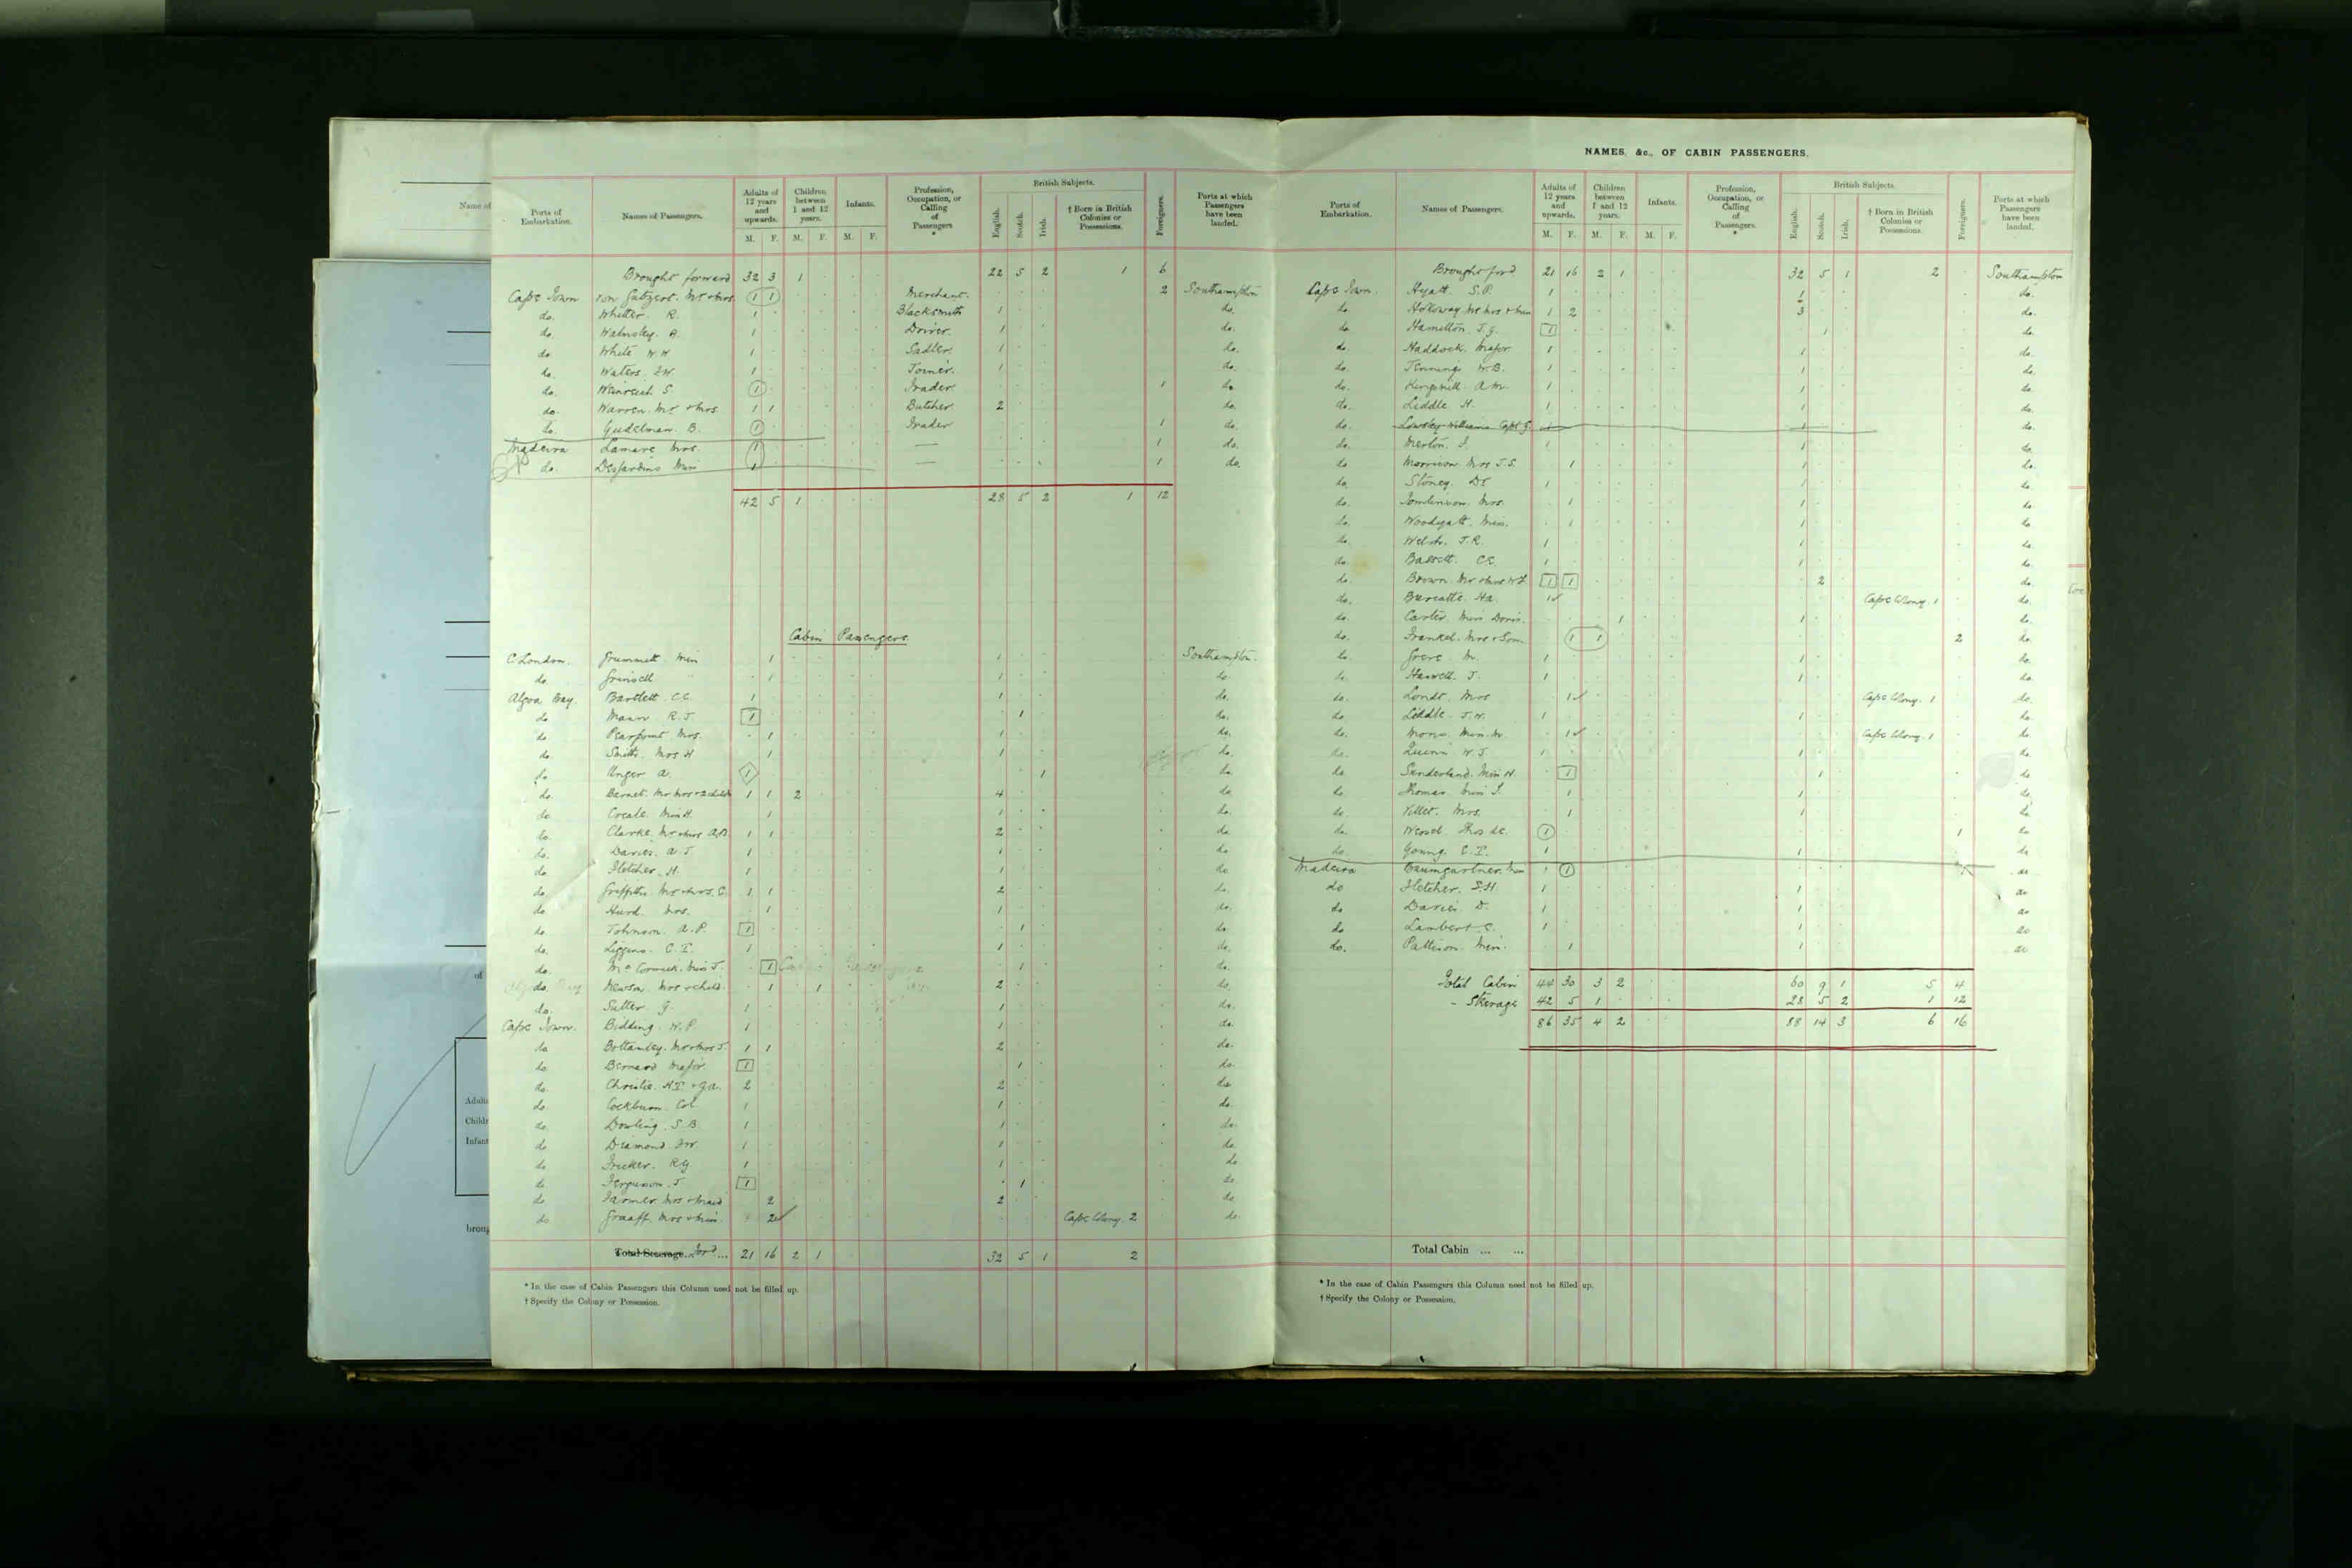 Name of
of
Adults
Childr
Infant
broug
Ports of Embarkation. Names of Passengers. Adults of 12 years and upwards. Children between 1 and 12 years. Infants. Profession, Occupation, or Calling of Passengers * British Subjects. Foreigners. Ports at which Passengers have been landed.
M. F. M. F. M. F. English. Scotch. Irish. † Born in British Colonies or Possessions.
Brought forward 32 3 1 22 5 2 1 6
Cape Town von Mr & Mrs. 1 1 Merchant. 2 Southampton
do. Whitter R. 1 Blacksmith 1 do.
do. Walmsley. A. 1 Driver. 1 do.
do White W.H 1 Sadler. 1 do.
do. Waters. F.W. 1 Joiner. 1 do.
do. Weinreich S. 1 Trader. 1 do.
do. Warren. Mr & Mrs. 1 1 Butcher. 2 do.
do. Gudelman. B. 1 Trader 1 do.
Madeira Lamare Mrs. 1 — 1 do.
do. Desjardins Miss 1 — 1 do.
42 5 1 28 5 2 1 12
Cabin Passengers
E. London. Grummett Miss 1 1 Southampton.
do. 1 1 do
Algoa Bay. Bartlett. C.C. 1 1 do.
do Mann R.J. 1 1 do.
do. Pearpoint Mrs. 1 1 do.
do. Smith. Mrs H 1 1 do.
do Unger A. 1 1 do.
do. Barnet. Mr Mrs & 2 child 1 1 2 4 do
do Miss H. 1 1 do.
do. Clarke. Mr & Mrs A.B. 1 1 2 do
do. Davies. A.J. 1 1 do
do. Fletcher. H. 1 1 do
do. Griffiths Mr & Mrs. C. 1 1 2 do.
do Hurd. Mrs. 1 1 do.
do. Johnson. A.P. 1 1 do.
do. Liggins. C.T. 1 1 do.
do. McCormick. Miss J. 1 1 do.
do. Newson. Mrs & child. 1 1 2 do.
do. Sutter. G. 1 1 do.
Cape Town. Bidding. W.P. 1 1 do.
do Bottomley. Mr & Mrs J. 1 1 2 do.
do. Bernard Major. 1 1 do.
do. Christie. H.T. & G.A. 2 2 do
do. Cockburn. Col 1 1 do.
do. Dowling. S.B. 1 1 do.
do Diamond. F.W. 1 1 do.
do Fricker. R.G 1 1 do
do Ferguson. J 1 1 do
do Farmer. Mrs & Maid 2 2 do
do Graaff. Mrs & Miss. 2 Cape Colony. 2 do.
Total Steerage... Ford ... 21 16 2 1 32 5 1 2
* In the case of Cabin Passengers this Column need not be filled up.
† Specify the Colony or Possession.
NAMES, &c., OF CABIN PASSENGERS.
Ports of Embarkation. Names of Passengers. Adults of 12 years and upwards. Children between 1 and 12 years. Infants. Profession, Occupation, or Calling of Passengers. * British Subjects. Foreigners. Ports at which Passengers have been landed.
M. F. M. F. M. F. English. Scotch. Irish. † Born in British Colonies or Possessions.
Brought ford 21 16 2 1 32 5 1 2 Southampton
Cape Town. Hyatt. S.P. 1 1 do.
do. Holloway Mr Mrs & Miss 1 2 3 do.
do Hamilton. J.G. 1 1 do.
do. Haddock. Major. 1 1 do.
do. Jennings W.B. 1 1 do.
do. Kingsmill. A.M. 1 1 do.
do. Liddle. H. 1 1 do.
do. Lowsley-Williams Capt G. 1 1 do.
do. Merton. J. 1 1 do.
do Morrison. Mrs J.S. 1 1 do.
do. Stoney. Dr 1 1 do.
do. Tomlinson. Mrs. 1 1 do.
do. Woodyatt. Miss. 1 1 do.
do. Welsh. J.R. 1 1 do.
do. Bassett. C.C. 1 1 do.
do. Brown. Mr & Mrs 1 1 2 do.
do. H.A. 1 Cape Colony 1 do.
do. Carter. Miss Doris. 1 1 do.
do. Frankel. Mrs & Son. 1 1 2 do.
do. M. 1 1 do.
do. Haswell. J. 1 1 do.
do. Londt. Mrs 1 Cape Colony. 1 do.
do. Liddle. J.W. 1 1 do.
do. Miss. M. 1 Cape Colony. 1 do.
do. Quinn W.J. 1 1 do.
do Sunderland. Miss H. 1 1 do
do. Thomas Miss J. 1 1 do.
do. Villet. Mrs. 1 1 do.
do. 1 1 do
do. Young. C.T. 1 1 do
Madeira Baumgartner. Miss 1 1 do
do Fletcher. S.H. 1 1 do
do Davies. D. 1 1 do
do Lambert. C. 1 1 do
do. Pattison. Miss. 1 1 do
Total Cabin 44 30 3 2 60 9 1 5 4
- Steerage 42 5 1 28 5 2 1 12
86 35 4 2 88 14 3 6 16
Total Cabin ... ...
* In the case of Cabin Passengers this Column need not be filled up.
† Specify the Colony or Possession.